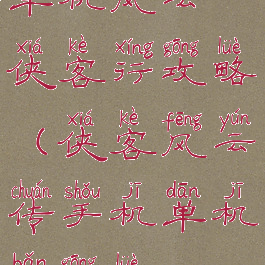 xiá kè xíng gōng lüè
侠客行攻略
xiá kè fēng yún
（侠客风云
chuán shǒu jī dān jī
传手机单机
bǎn gōng lüè